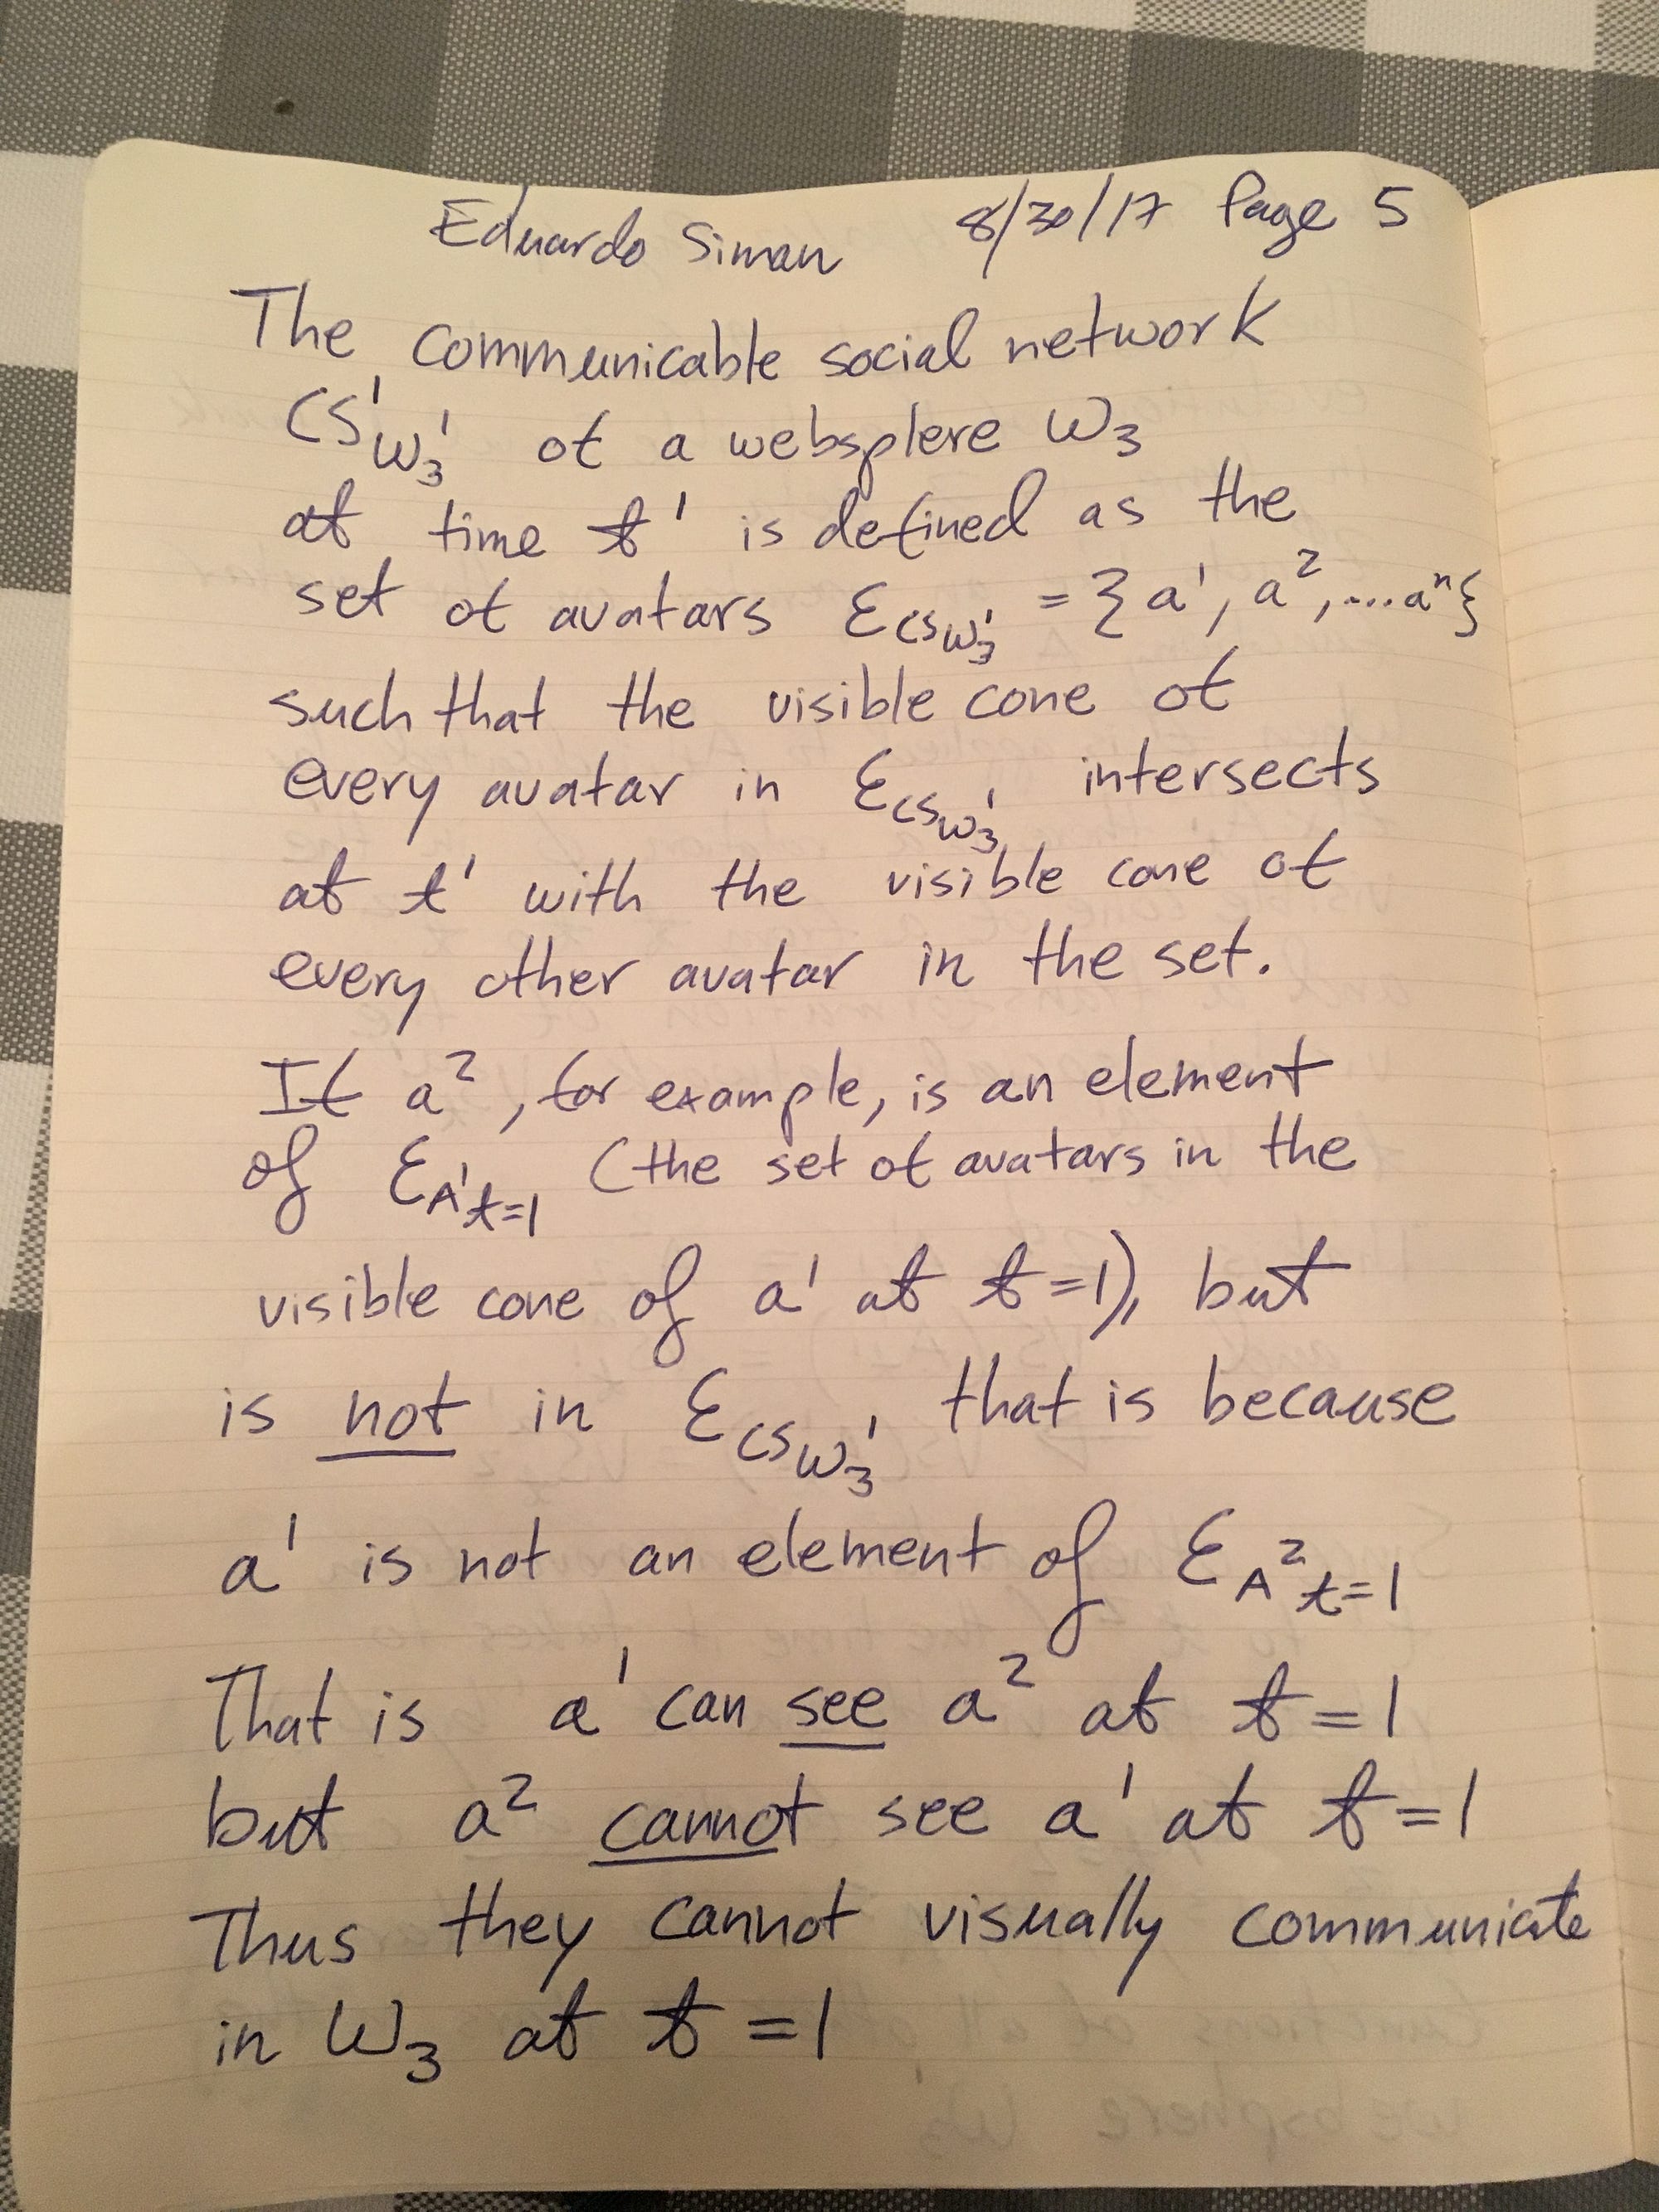 Eduardo Siman 8/30/17 Page 5
The communicable social network
CS'w₃' of a websplere W₃
at time t' is defined as the
set of avatars Ɛcsw₃' = {a¹, a², ....aⁿ}
such that the visible cone of
every avatar in Ɛcsw₃' intersects
at t' with the visible cone of
every other avatar in the set.
If a², for example, is an element
of ƐA¹t=1 (the set of avatars in the
visible cone of a¹ at t=1), but
is not in Ɛcsw₃' that is because
a¹ is not an element of ƐA²t=1
That is a¹ can see a² at t=1
but a² cannot see a¹ at t=1
Thus they cannot visually communicate
in W₃ at t=1